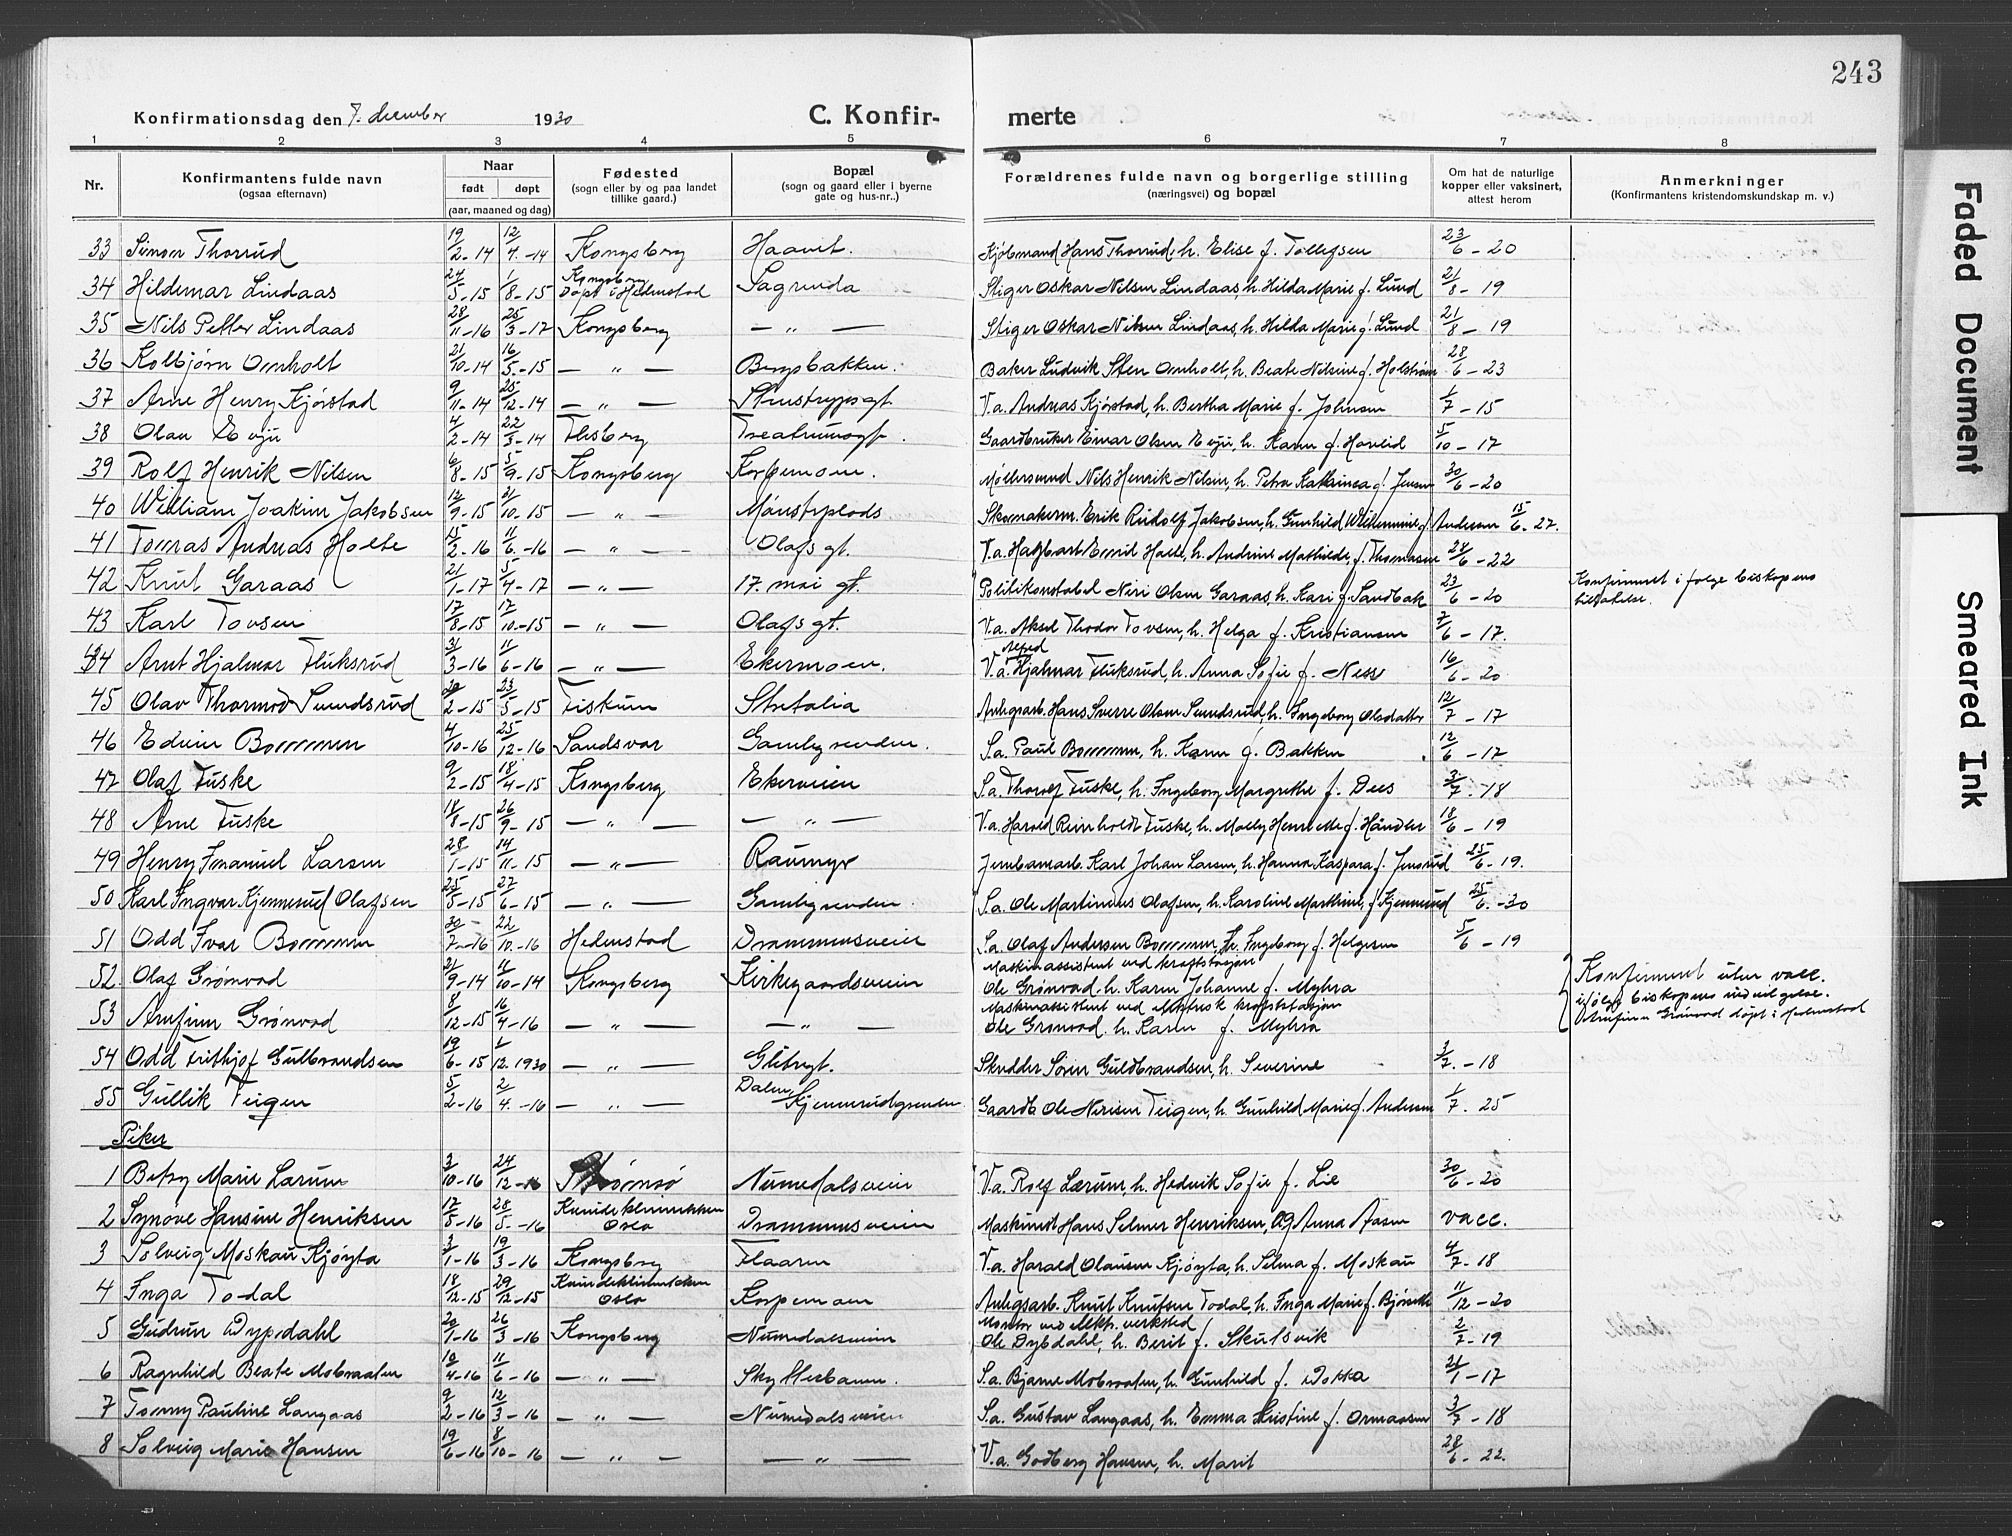 243
Konfirmationsdag den 7. december 1930 C. Konfir- merte
1 2 3 4 5 6 7 8
Nr. Konfirmantens fulde navn (ogsaa efternavn) Naar født døpt (aar, maaned og dag) Fødested (sogn eller by og paa landet tillike gaard.) Bopæl (sogn og gaard eller i byerne gate og hus-nr..) Forældrenes fulde navn og borgerlige stilling (næringsvei) og bopæl Om hat de naturlige kopper eller vaksinert, attest herom Anmerkninger (Konfirmantens kristendomskundskap m. v.)
33 Simon Thorrud 19/2-14 12/4-14 Kongsberg Haavet. Kjøbmand Hans Thorrud, h. Elise f. Tollefsen 23/6-20
34 Hildemar Lindaas 24/5-15 1/8-15 Kongsberg Døpt i Hedenstad Sagrenda Stiger Oskar Nilsen Lindaas, h. Hilda Marie f. Lund 21/8-19
35 Nils Petter Lindaas 28/11-16 25/3-17 Kongsberg — " — Stiger Oskar Nilsen Lindaas, h. Hilda Marie f. Lund 21/8-19
36 Kolbjørn Omholt 21/10-14 16/5-15 — " — Bergsbakken. Baker Ludvik Sten Omholt, h. Beate Nilsine f. Holstrøm 28/6-23
37 Arne Henry Kjørstad 9/11-14 25/12-14 — " — Stenstrupsgt V.a. Andreas Kjørstad, h. Bertha Marie f. Johnsen 1/7-15
38 Olav Evju 4/2-14 22/3-14 Flesberg Gaardbruker Einar Olsen Evju, h. Karen f. Havlid 5/10-17
39 Rolf Henrik Nilsen 6/8-15 5/9-15 Kongsberg Korpemoen. Møllersvend Nils Henrik Nilsen, h. Petra Katrinea f. Jensen 30/6-20
40 William Joakim Jakobsen 12/9-15 21/10-15 — " — Skomakerm. Erik Rudolf Jakobsen, h. Gunhild Willemine f. Andersen 15/6-27.
41 Tomas Andreas Holte 15/2-16 11/6-16 — " — Olafs gt. V.a. Hagbart Emil Holte, h. Andrine Mathilde, f. Thomassen 24/6-22
42 Knut Garaas 21/1-17 5/4-17 — " — 17. mai gt. Politikonstabel Neri Olsen Garaas, h. Kari f. Sandbæk 23/6-20 Konfirmert i følge biskopens tillatelse.
43 Karl Tovsen 17/8-15 17/10-15 — " — Olafs gt. V.a. Aksel Theodor Tovsen, h. Helga f. Kristiansen 7/6-17.
44 Arnt Hjalmar Fluksrud 31/3-16 11/6-16 — " — Ekermoen. V.a. Hjalmar Fluksrud, h. Anna Sofie f. Ness 16/6-20
45 Olav Thormod Sundsrud 20/2-15 23/5-15 Fiskum Stretalia Anlegsarb. Hans Sverre Olsen Sundsrud, h. Ingeborg Olsdatter 12/7-17
46 Edvin Bommen 4/10-16 25/12-16 Sandsvær Gamlegrenden. S.a. Paul Bommen, h. Karen f. Bakken 12/6-17
47 Olaf Fuske 9/2-15 18/4-15 Kongsberg Ekerveien S.a. Thorolf Fuske, h. Ingeborg Margrethe f. Dees 3/7-18
48 Arne Fuske 18/8-15 26/9-15 — " — — " — V.a. Harald Reinholdt Fuske, h. Molly Henriette f. Händler 18/6-19
49 Henry Emanuel Larsen 28/1-15 14/11-15 — " — Raumyr Jernbanearb. Karl Johan Larsen, h. Hanna Kaspara f. Jensrud 25/6-19.
50 Karl Ingvar Kjennerud Olafsen 25/5-15 27/6-15 — " — Gamlegrenden. S.a. Ole Martinius Olafsen, h. Karoline Martine, f. Kjennerud 25/6-30
51 Odd Ivar Bommen 30/7-16 22/10-16 Hedenstad Drammensveien S.a. Olaf Andersen Bommen, h. Ingeborg f. Helgesen 5/6-19
52. Olaf Grønvad 21/9-14 11/10-14 Kongsberg Kirkegaardsveien Maskinassistent ved kraftstasjon Ole Grønvad h. Karen Johanne f. Myhra Konfirmert uten vacc.
53 Arnfinn Grønvad 8/12-15 16/4-16 — " — — " — Maskinassistent ved kraftstasjon Ole Grønvad h. Karen f. Myhra i følge biskopens indvilgelse. Arnfinn Grønvad døpt i Hedenstad
54 Odd Frithjof Gulbrandsen 19/6-15 1/12.1930 — " — Glitregt. Skredder Søren Guldbrandsen, h. Severine 3/7-18
55 Gullik Teigen 5/2-16 2/4-16 — " — Dalen Kjennerudgrenden Gaardb Ole Nerisen Teigen, h. Gunhild Marie f. Andersen 1/7. 25
Piker
1 Betsy Marie Lærum 3/10-16 24/12-16 Strømsø Numedalsveien V.a. Rolf Lærum, h. Hedvik Sofie f. Lie 30/6-20
2 Synøve Hansine Henriksen 17/5-16 28/5-16 Kvindeklinikken Oslo Drammensveien Maskinist Hans Selmer Henriksen, og Anna Aasen vacc.
3 Solveig Moskau Kjøyta 3/1-16 19/3-16 Kongsberg Flaaren V.a. Harald Olausen Kjøyta, h. Selma f. Moskau 4/7-18
4 Inga Todal 18/12-15 29/12-15 Kvindeklinikken Oslo Korpemoen Anlegsarb. Knut Knutsen Todal, h. Inga Marie f. Bjørseth 11/12-20
5 Gudrun Dypdahl 20/1-16 26/3-16 Kongsberg Numedalsveien Montør ved elektr. verksted Ole Dybdahl, h. Berit f. Skutsvik 2/7-19
6 Ragnhild Beate Mobraaten 10/4-16 11/6-16 — " — Skytterbanen. S.a. Bjarne Mobraaten, h. Gunhild f. Dokka 21/1-17
7 Tommy Pauline Langaas 9/2-16 12/3-16 — " — Numedalsveien S.a. Gustav Langaas, h. Emma Kristine f. Ormaasen 3/7-18
8 Solveig Marie Hansen 19/6-16 8/10-16 — " — — " — V.a. Godberg Hansen, h. Marit 28/6-22.
Faded Document
Smeared Ink